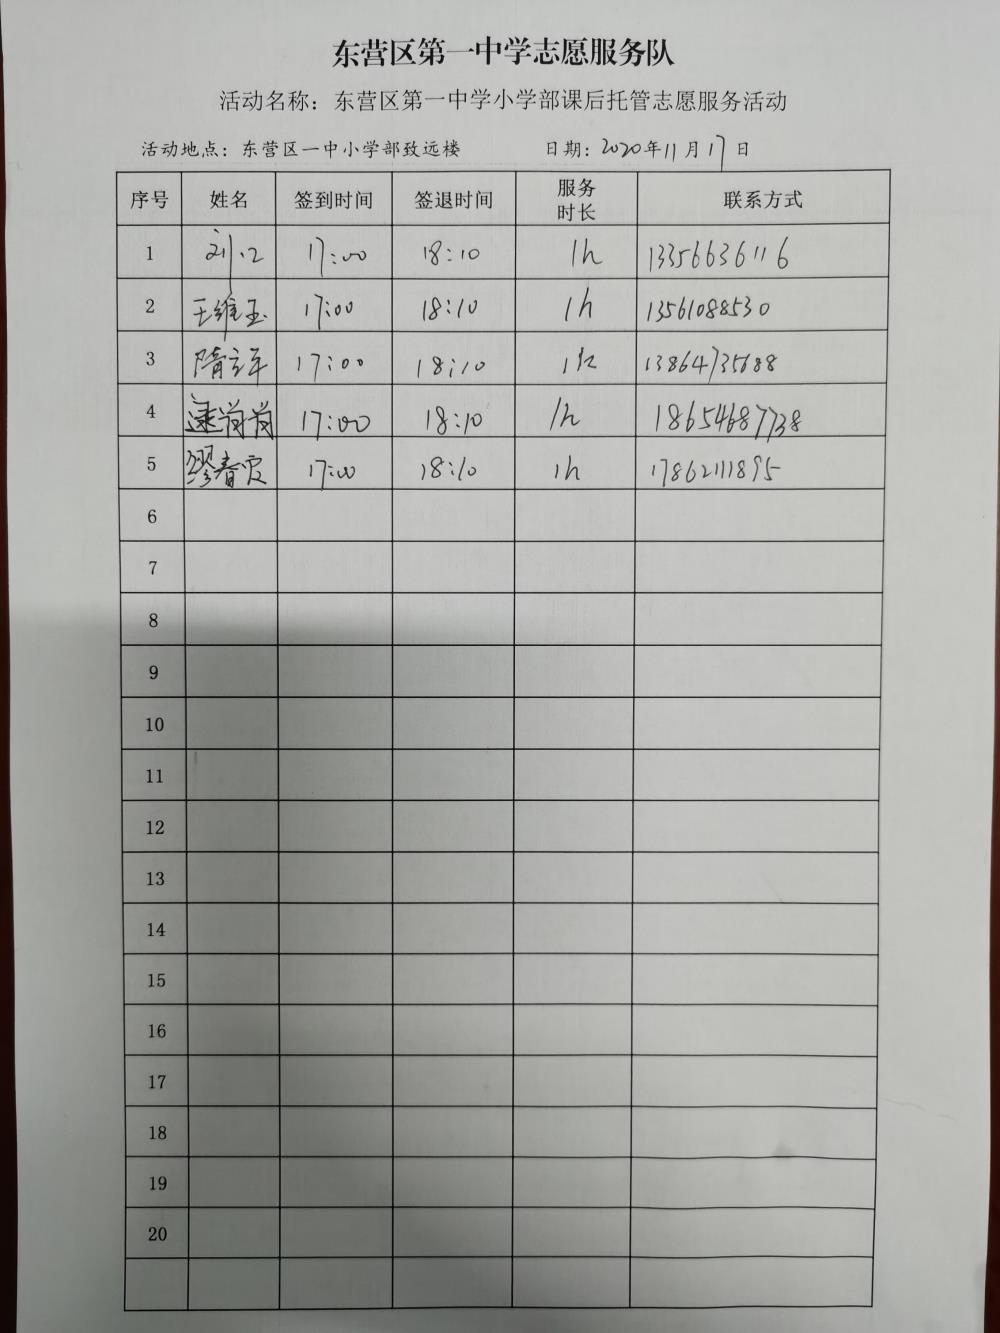 东营区第一中学志愿服务队
活动名称：东营区第一中学小学部课后托管志愿服务活动
活动地点：东营区一中小学部致远楼 日期：2020年11月17日
序号 姓名 签到时间 签退时间 服务时长 联系方式
1 17:00 18:10 1h 13356636116
2 王维玉 17:00 18:10 1h 13561088530
3 隋立军 17:00 18:10 1h 13864735688
4 17:00 18:10 1h 18654687738
5 缪春霞 17:00 18:10 1h 17862111895
6
7
8
9
10
11
12
13
14
15
16
17
18
19
20